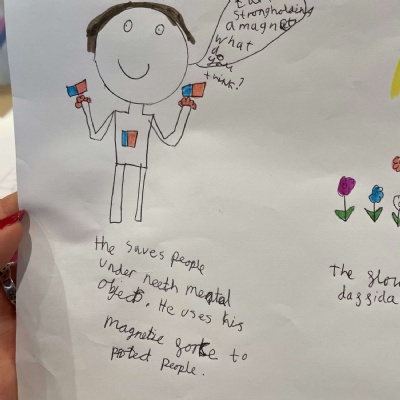 strongholding
a magnet
what
do
you
think?
the saves people
under neeth meatal
objects. He uses his
magnetic forke to
protect people.
the